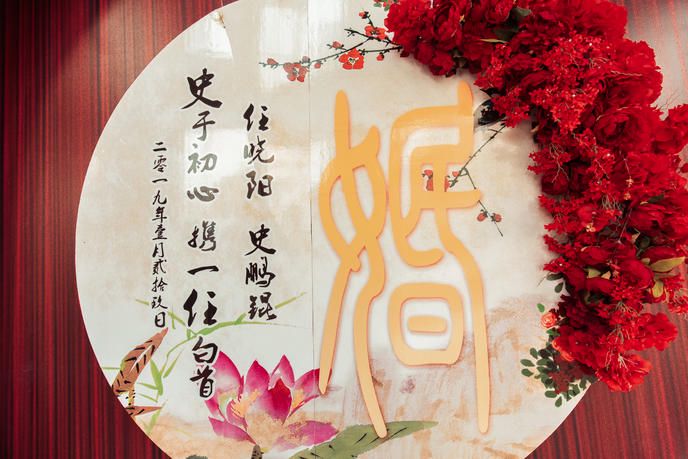 婚
任晓阳 史鹏锟
史于初心 携一任白首
二零一九年壹月贰拾玖日